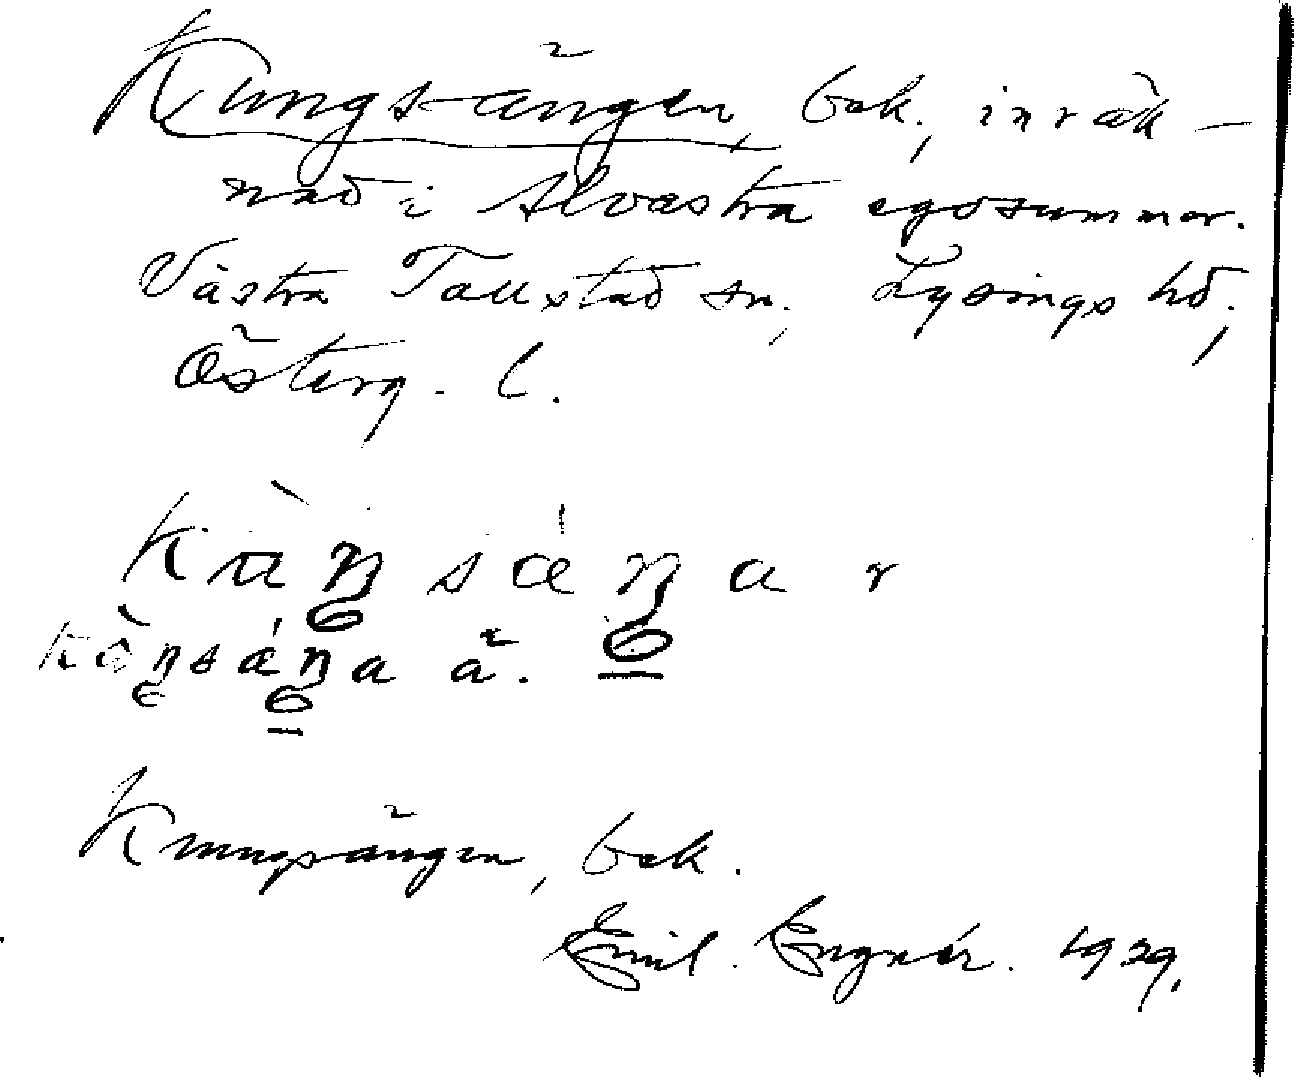 Kungs-ängen, bek., inräk-
nad i Alvastra egosummor.
Västra Tollstad sn., Lysings hd.,
Österg. l.
Kùŋsáŋar
Kòŋsáŋa ä.
Kungsängen, bek.
Emil. Engnér. 1929.